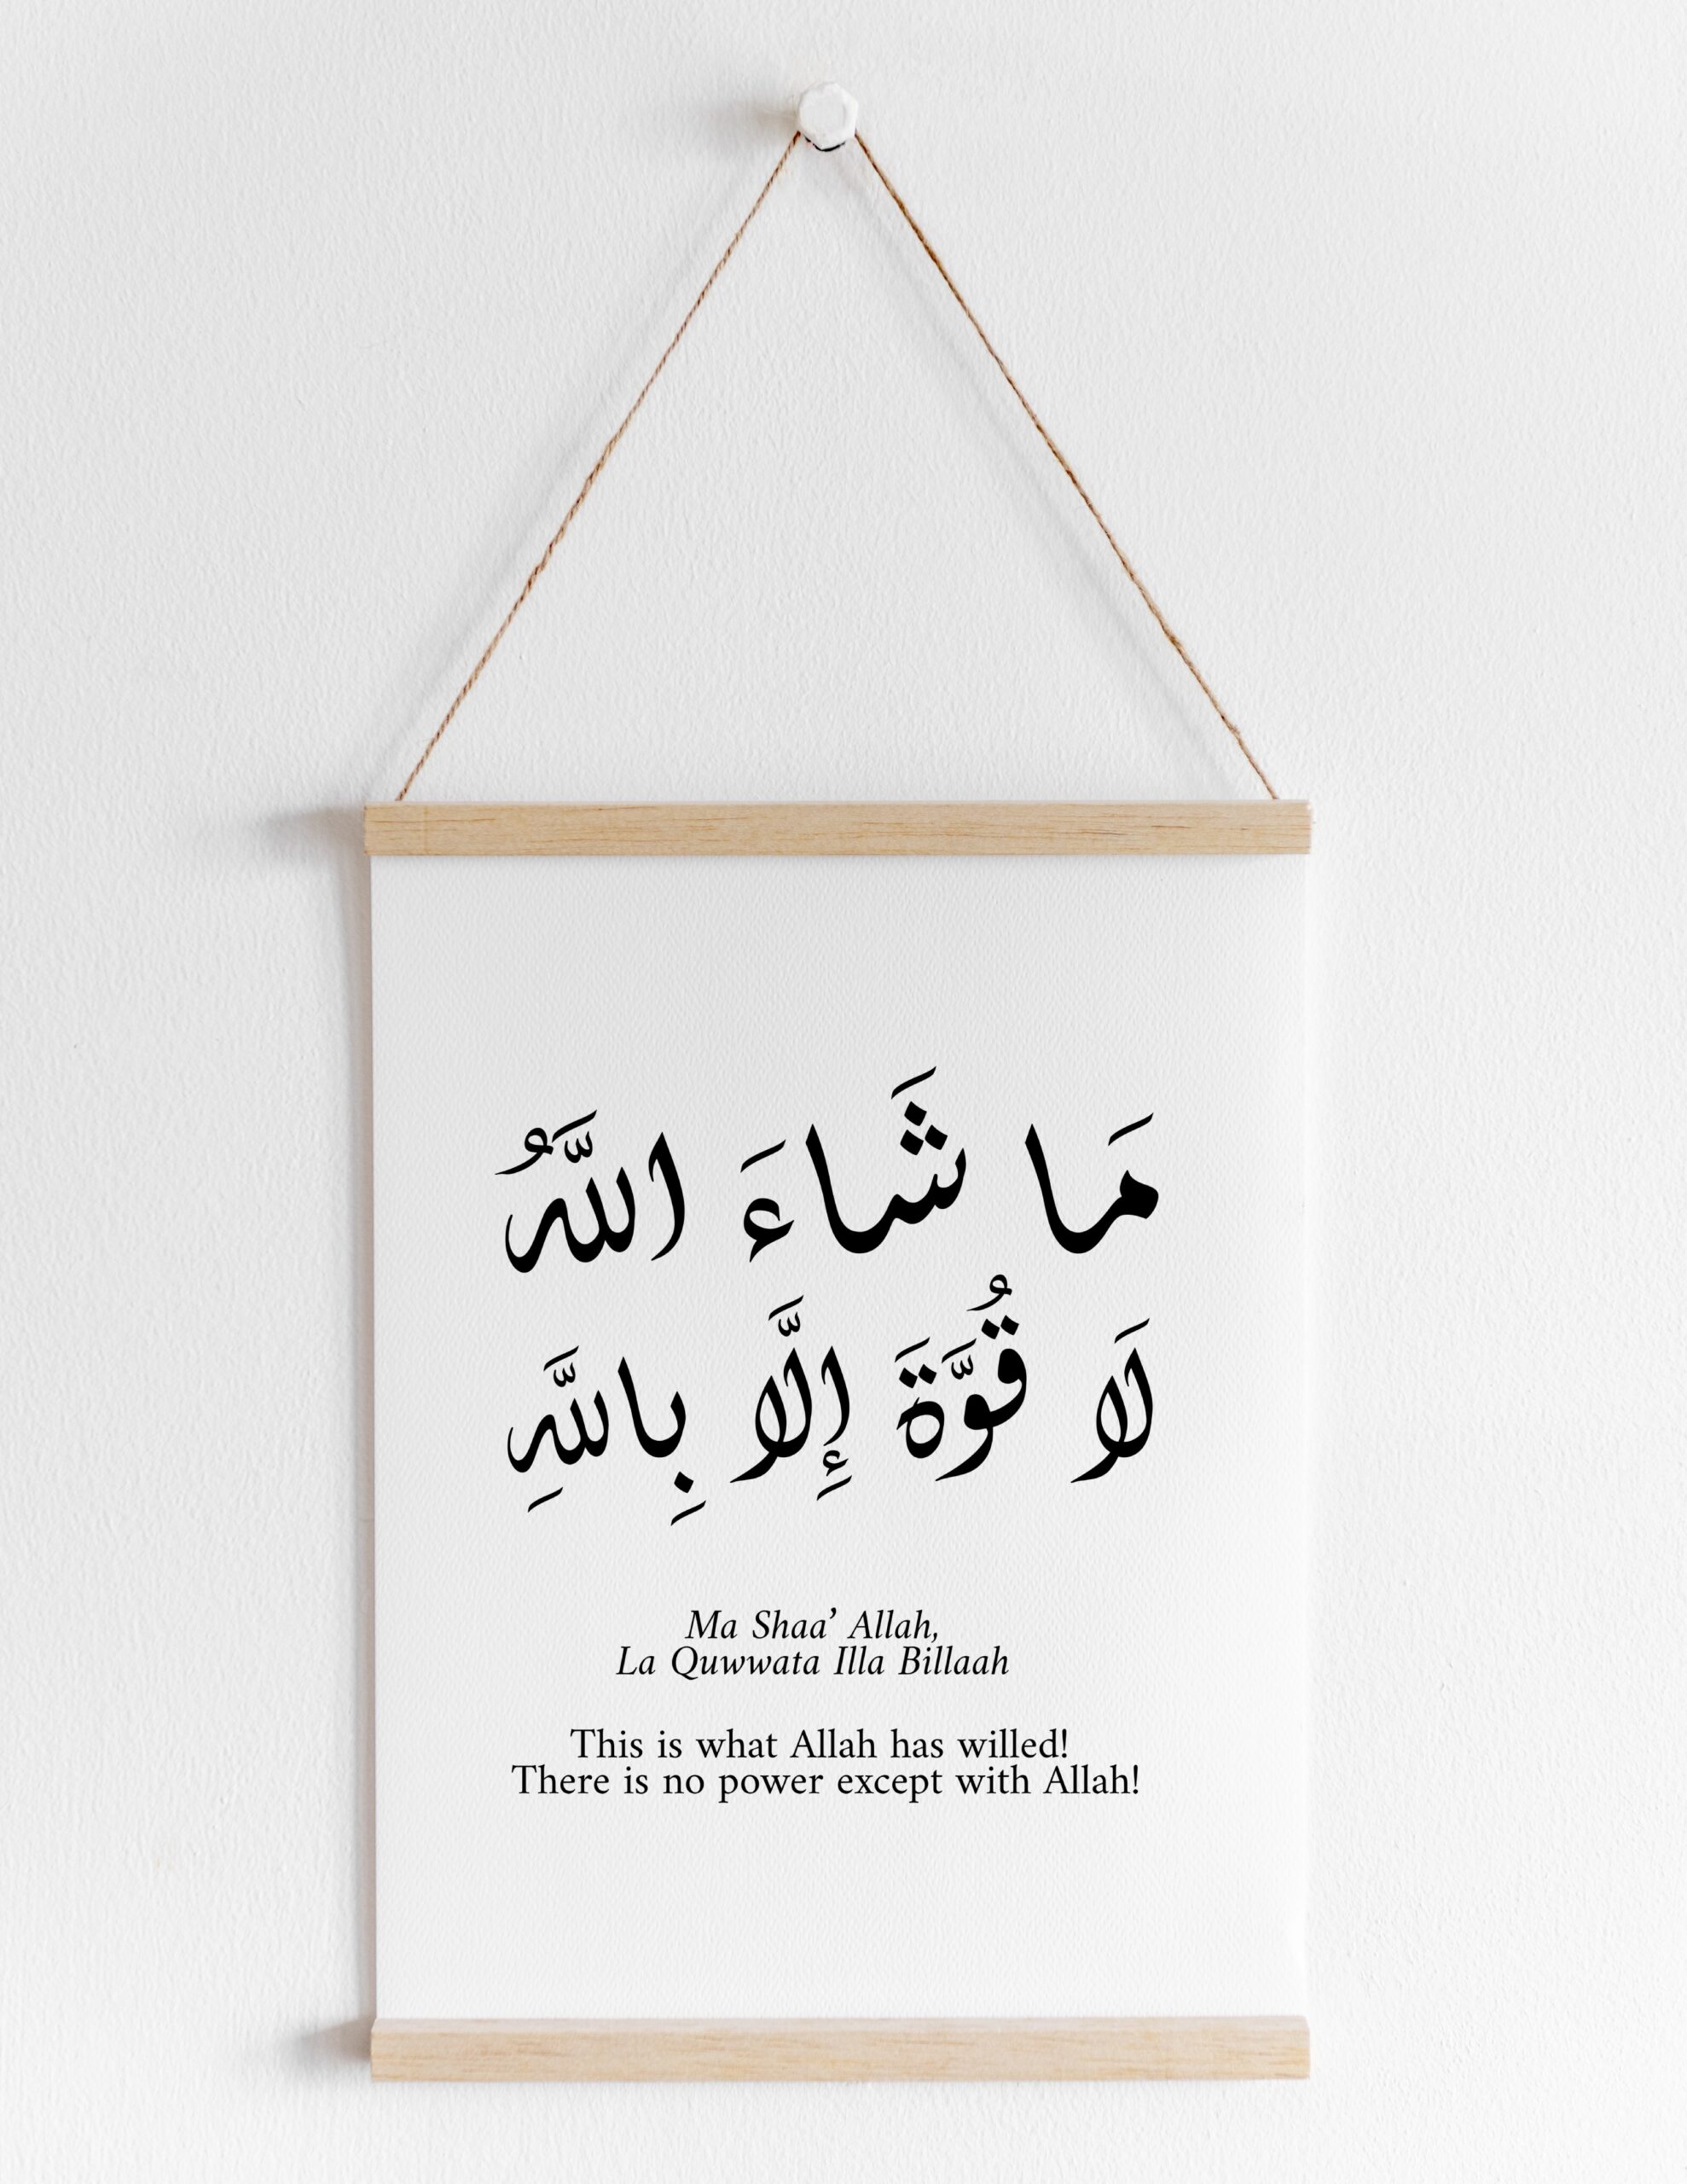 مَا شَاءَ اللَّهُ
لَا قُوَّةَ إِلَّا بِاللَّهِ
Ma Shaa’ Allah,
La Quwwata Illa Billaah
This is what Allah has willed!
There is no power except with Allah!